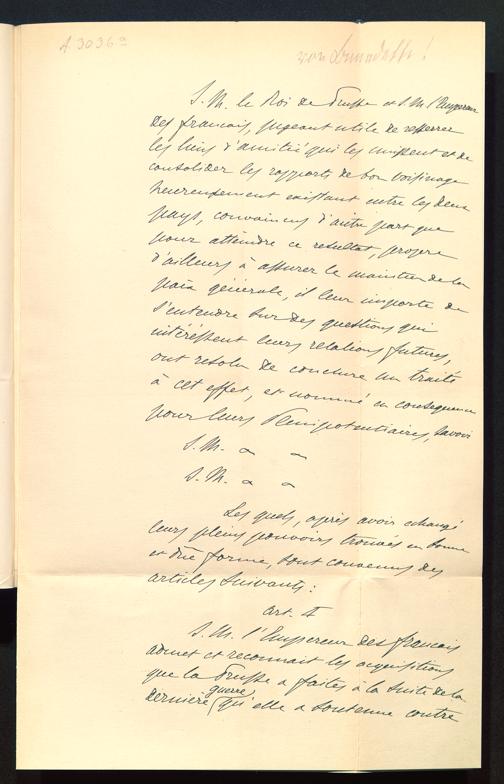 A. 3036 a
von Benedetti!
S. M. le Roi de Prusse et S M l'Empereur
Des francais, jugeant utile de resserrer
les liens d'amitié qui les unissent et de
consolider les rapports de bon voisinage
heureusement existant entre les deux
pays, convaincus d'autre part que
pour atteindre ce resultat, propre
d'ailleurs à assurer le maintien de la
paix générale, il leur importe de
s'entendre sur des questions qui
intéressent leurs relations futures,
ont resolu de conclure un traité
à cet effet, et nommé en consequence
pour leurs Plenipotentiaires, savoir
S. M.
S. M.
Les quels, après avoir echangé
leurs pleins pouvoirs trouvés en bonne
et due forme, sont convenus des
articles suivants:
art. I
S. M. l'Empereur des francais
admet et reconnait les acquisitions
que la Prusse a faites à la suite de la
derniere guerre qu'elle a soutenue contre